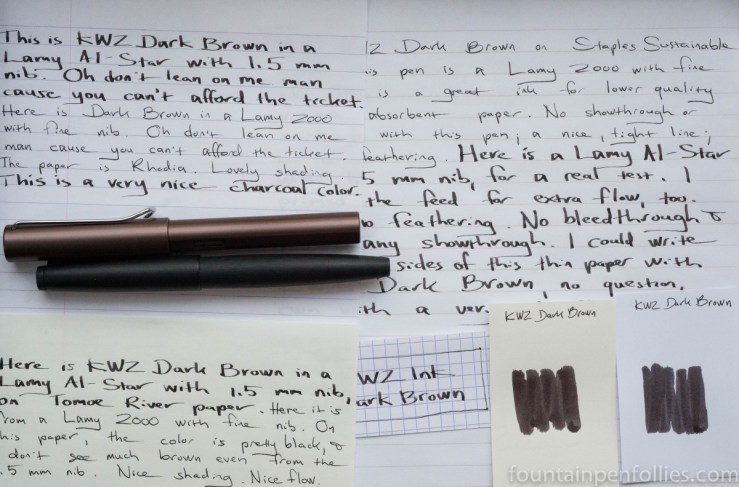 This is KWZ Dark Brown in a
Lamy Al-Star with 1.5 mm
nib. Oh don't lean on me man
cause you can't afford the ticket.
Here is Dark Brown in a Lamy 2000
with fine nib. Oh don't lean on me
man cause you can't afford the ticket.
The paper is Rhodia. Lovely shading.
This is a very nice charcoal color.
Z Dark Brown on Staples Sustainable
is pen is a Lamy 2000 with fine
is a great ink for lower quality
absorbent paper. No showthrough or
with this pen; a nice, tight line;
feathering. Here is a Lamy Al-Star
5 mm nib, for a real test. I
the feed for extra flow, too.
feathering. No bleedthrough &
any showthrough. I could write
sides of this thin paper with
Dark Brown, no question,
ith a
Here is KWZ Dark Brown in a
Lamy Al-Star with 1.5 mm nib,
on Tomoe River paper. Here it is
from a Lamy 2000 with fine nib. On
his paper, the color is pretty black, &
don't see much brown even from the
.5 mm nib. Nice shading. Nice flow.
WZ Ink
ark Brown
KWZ Dark Brown
KWZ Dark Brown
fountainpenfollies.com